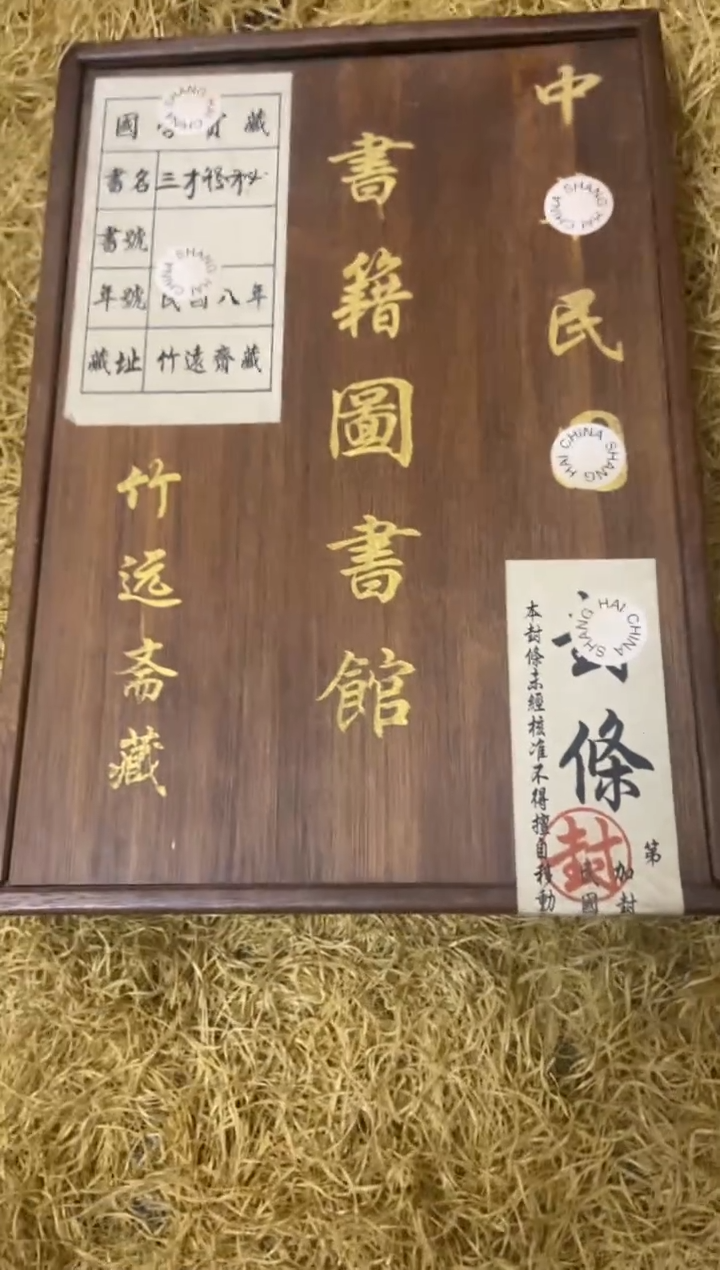 中
民
書籍圖書館
竹远斋藏
國
藏
書名
三才
書號
年號
民國八年
藏址
竹遠齋藏
條
本封條未經核准不得擅自移動
封
第
加封
民國
SHANG HAI CHINA
SHANG HAI CHINA
SHANG HAI CHINA
SHANG HAI CHINA
SHANG HAI CHINA